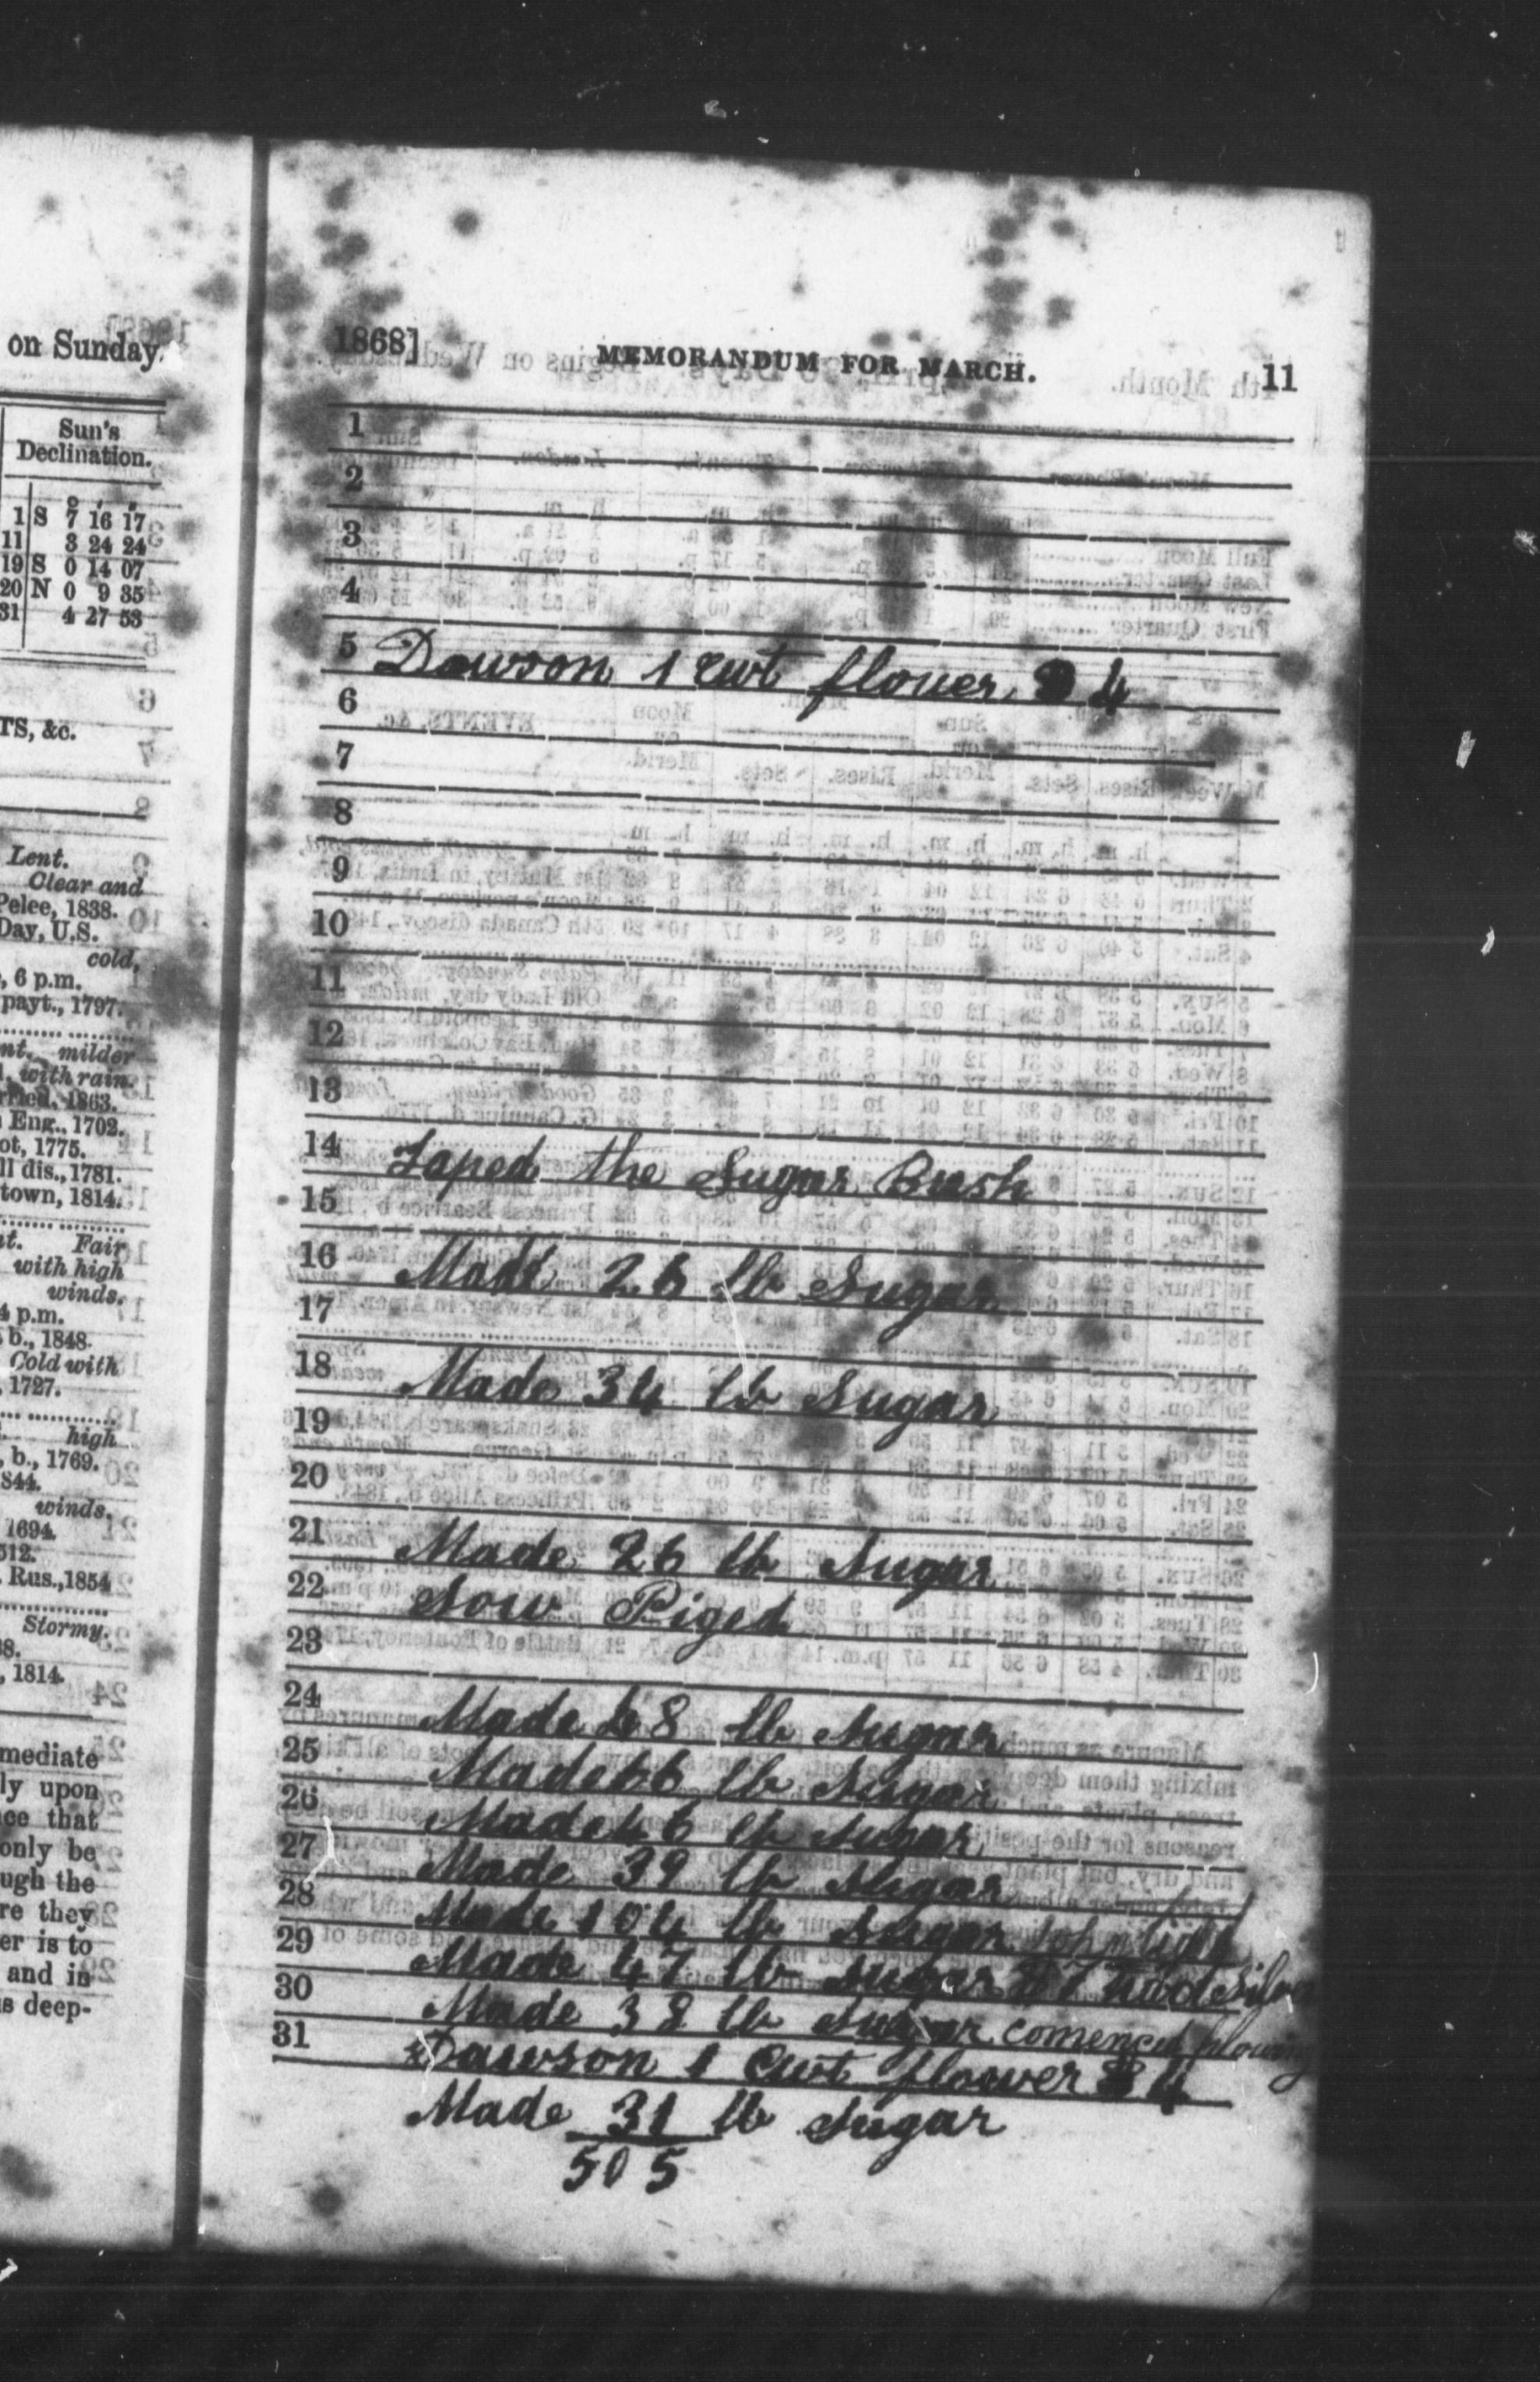 on Sunday.
Sun's
Declination.
° ′ ″
1 S 7 16 17
11 3 24 24
19 S 0 14 07
20 N 0 9 35
31 4 27 53
TS, &c.
Lent.
Clear and
Pelee, 1838.
Day, U.S.
cold,
, 6 p.m.
payt., 1797.
milder
with rain.
1863.
Eng., 1702.
ot, 1775.
ll dis., 1781.
town, 1814.
Fair
with high
winds.
4 p.m.
b., 1848.
Cold with
, 1727.
high
, b., 1769.
844.
winds.
1694.
512.
Rus., 1854
Stormy.
38.
, 1814.
mediate
ly upon
ce that
only be
ugh the
re they
er is to
and in
s deep-
1868] MEMORANDUM FOR MARCH. 11
1
2
3
4
5 Dawson 1 cwt flouer $ 4
6
7
8
9
10
11
12
13
14 Taped the Sugar Bush
15
16 Made 26 lb Sugar
17
18 Made 34 lb Sugar
19
20
21 Made 26 lb Sugar
22 Sow Piged
23
24 Made 48 lb Sugar
25 Made 66 lb Sugar
26 Made 46 lb Sugar
27 Made 39 lb Sugar
28 Made 104 lb Sugar John
29 Made 47 lb Sugar
30 Made 38 lb Sugar comenced plowing
31 Dawson 1 Cwt flower $ 4
Made 31 lb Sugar
505